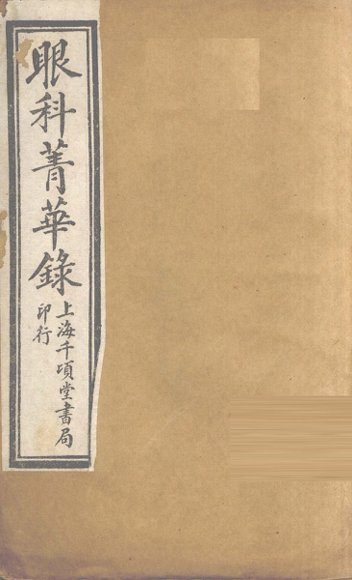 眼科菁華錄
上海千頃堂書局
印行